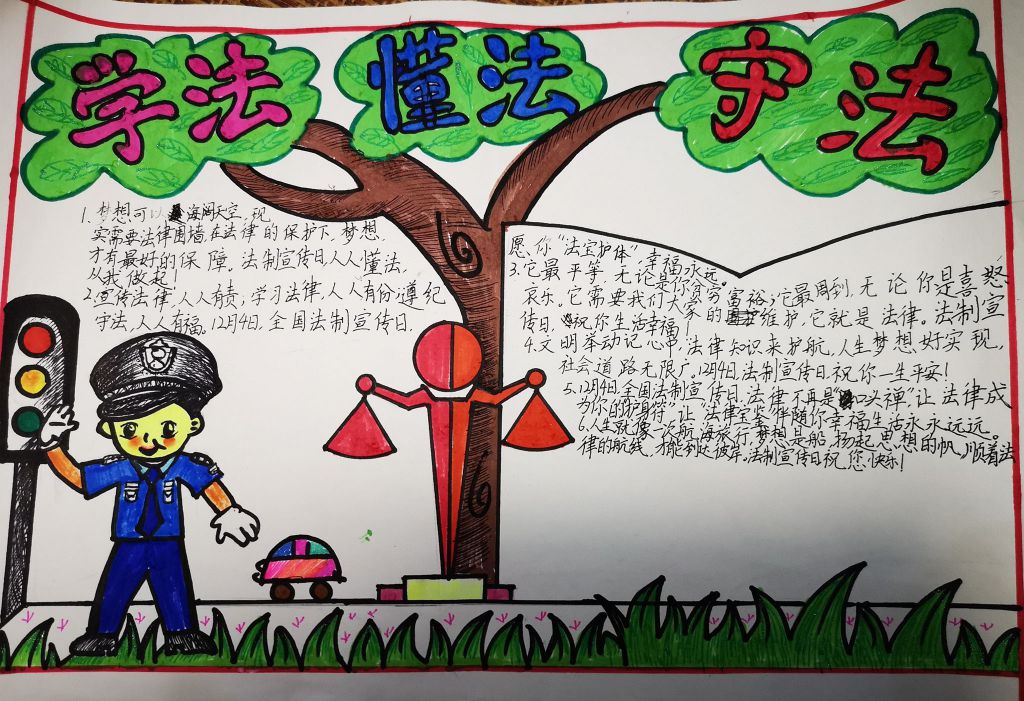 学法 懂法 守法
1、梦想可以海阔天空,现
实需要法律围墙,在法律的保护下,梦想
才有最好的保障。法制宣传日人人懂法,
从我做起!
2、宣传法律,人人有责;学习法律,人人有份;遵纪
守法,人人有福。12月4日,全国法制宣传日,
愿你"法宝护体",幸福永远。
3、它最平等,无论是你贫穷富裕;它最周到,无论你是喜怒
哀乐。它需要我们大家的维护,它就是法律。法制宣
传日,祝你生活幸福!
4、文明举动记心中,法律知识来护航,人生梦想好实现,
社会道路无限广。12月4日,法制宣传日,祝你一生平安!
5、12月4日全国法制宣传日,法律不再是"口头禅"让法律成
为你的"护身符"让"法律宝鉴"伴随你幸福生活永永远远。
6、人生就像一次航海旅行,梦想是船,扬起思想的帆,顺着法
律的航线,才能到达彼岸。法制宣传日祝您快乐!